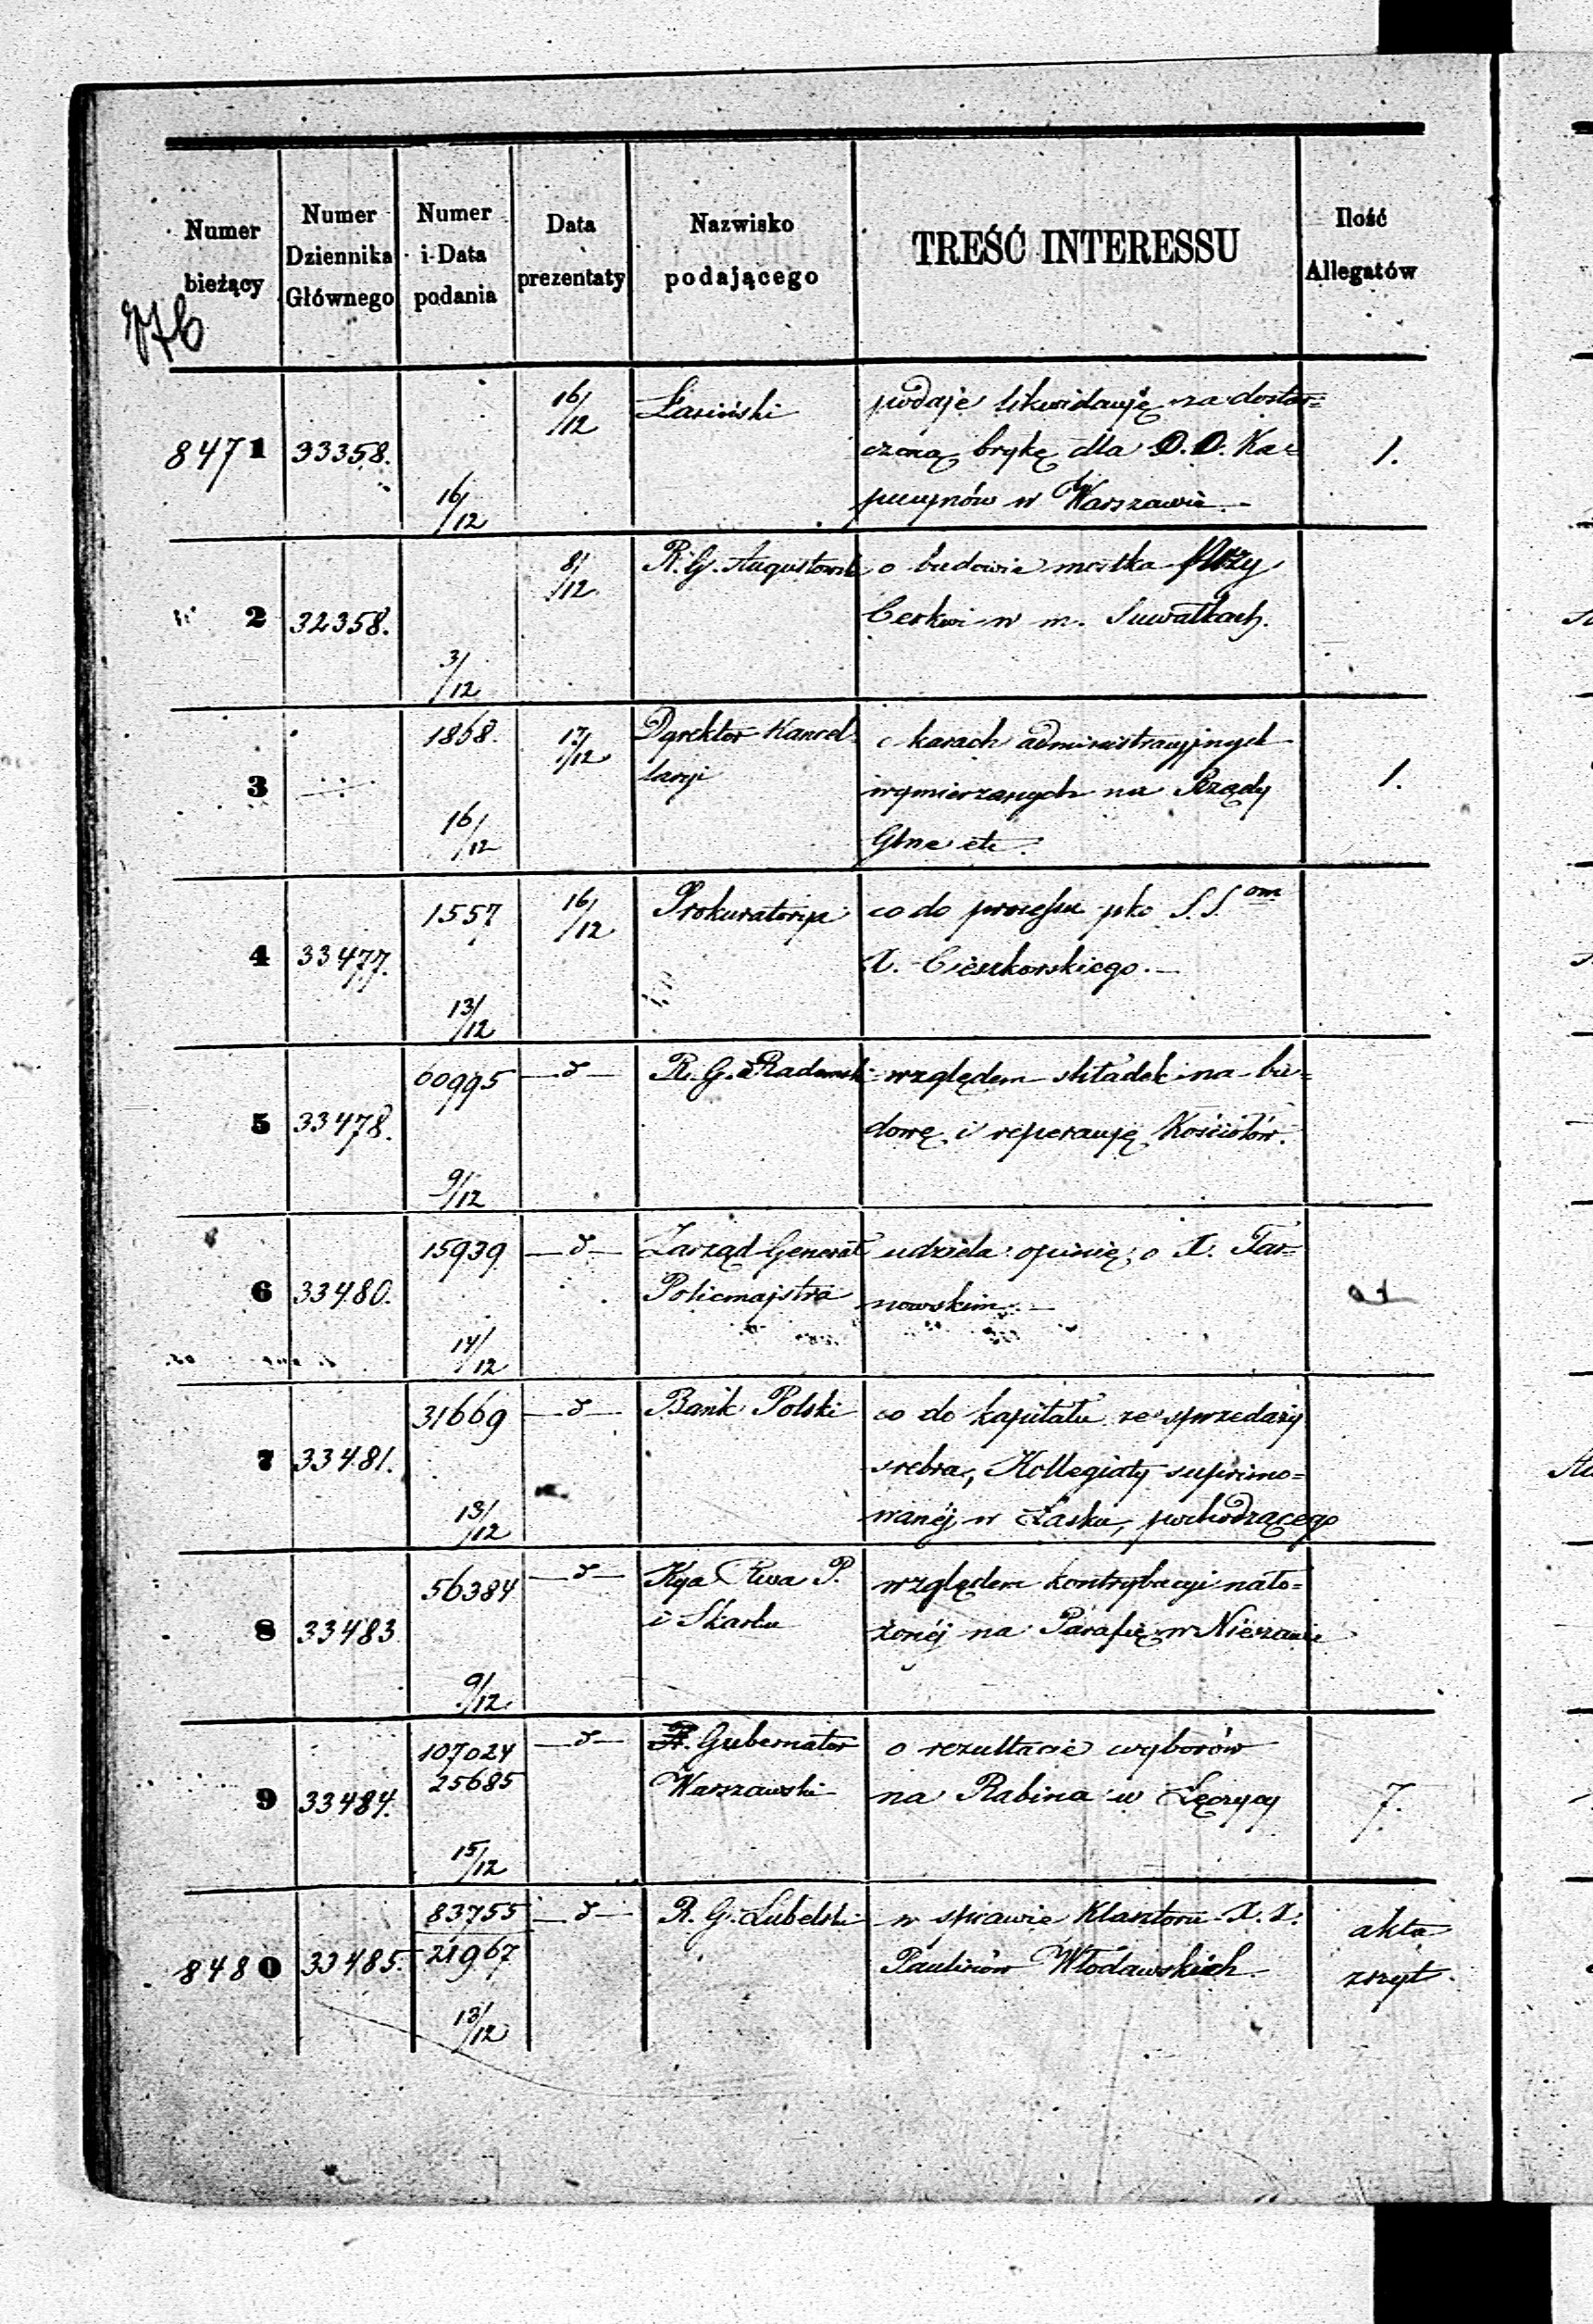 Numer bieżący
Numer Dziennika Głównego
Numer i Data podania
Data prezentaty
Nazwisko podającego
TREŚĆ INTERESSU
Ilość Allegatów
8471 33358. 16/12 16/12 Łasiński podaje likwidacyję za dostar=
czoną brykę dla O.O. Ka= 1.
pucynów w Warszawie.—
2 32358. 3/12 8/12 R. G. Augustowski o budowie mostka przy
Cerkwi w m. Suwałkach.
3 1868. 16/12 17/12 Dyrektor Kancel- o karach administracyjnych
laryi wymierzanych na Rządy 1.
Gbne etc.
4 33477. 1557 13/12 16/12 Prokuratorya co do processu pko S.S.om
X. Cieszkorskiego.—
5 33478. 60995 9/12 —d— R. G. Radomski względem składek na bu=
dowę i reperacyję Kościołów.
6 33480. 15939 14/12 —d— Zarząd Generał udziela opinię o X. Tar=
Policmajstra nowskim.—
7 33481. 31669 13/12 —d— Bank Polski co do kapitału ze sprzedaży
srebra, Kollegiaty suprimo=
wanéj w Łasku, pochodzącego
8 33483 56384 9/12 —d— Kya Rwa P. względem kontrybucyi nało=
i Skarbu żonéj na Parafię w Nieszawie
9 33484. 107024 25685 15/12 —d— Gubernator o rezultacie wyborów
Warszawski na Rabina w Łęczycy 7.
8480 33485. 83755 21967 13/12 —d— R. G. Lubelski w sprawie Klasztoru X.X. akta
Paulinów Włodawskich. zszyt.